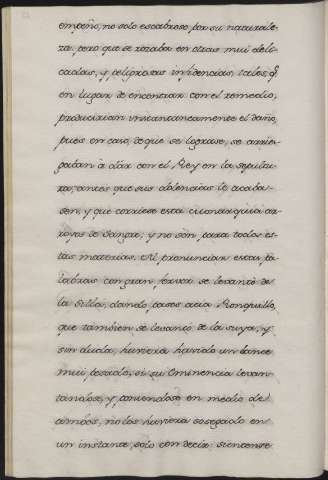 empeño, no solo escabroso por su naturale-
za, pero que se rozaba en otras mui deli-
cadas, y peligrosas incidencias, tales, q.
en lugar de encontrar con el remedio,
producirian instantaneamente el daño,
pues en caso, de que se lograse, se arries-
gaban à dàr con el Rey en la sepultu-
ra, antes que sus dolencias le acaba-
sen, y que corriese esta Monarquia ar-
royos de sangre, y no són para todos es-
tas materias. Al pronunciar estas pa-
labras con gran fervor se levantò de
la silla, dando pasos acia Ronquillo,
que tambien se levantò de la suya, y
sin duda, huviera havido un lance
mui pesado, si su Eminencia levan-
tandose, y poniendose en medio de
ambos, no los huviera sosegado en
un instante, solo con decir sientense